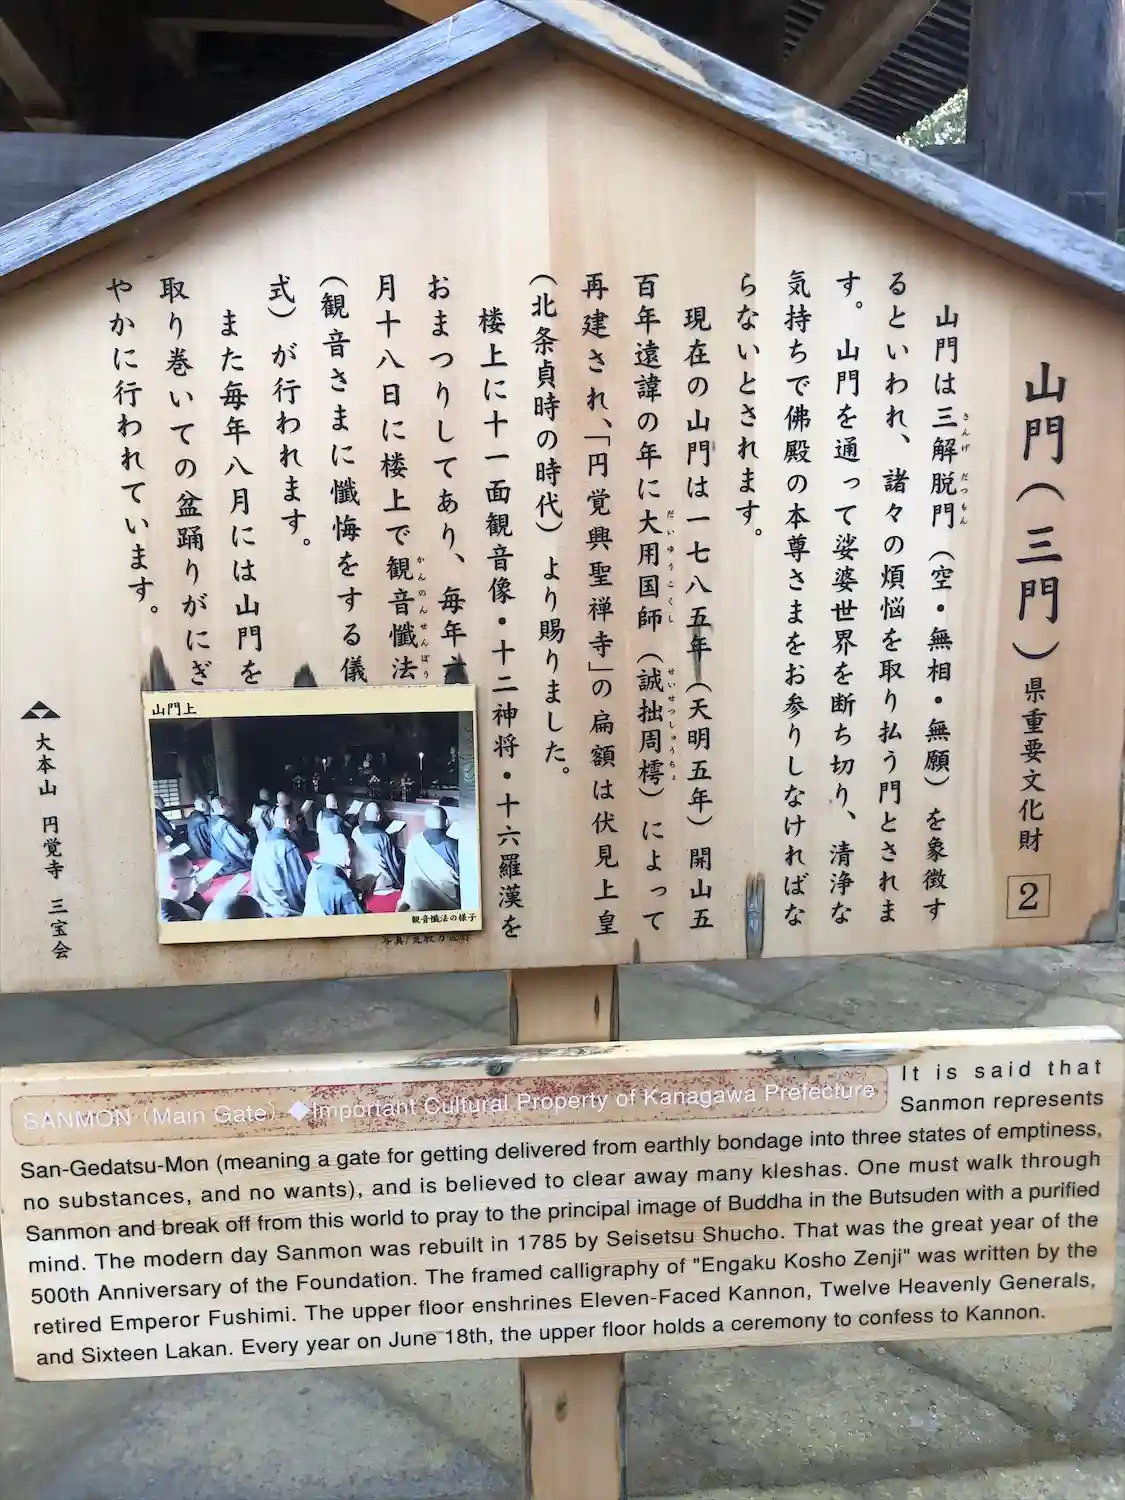 山門(三門)県重要文化財 2
山門は三解脱門(空・無相・無願)を象徴す
るといわれ、諸々の煩悩を取り払う門とされま
す。山門を通って娑婆世界を断ち切り、清浄な
気持ちで佛殿の本尊さまをお参りしなければな
らないとされます。
現在の山門は一七八五年(天明五年)開山五
百年遠諱の年に大用国師(誠拙周樗)によって
再建され、「円覚興聖禅寺」の扁額は伏見上皇
(北条貞時の時代)より賜りました。
楼上に十一面観音像・十二神将・十六羅漢を
おまつりしてあり、毎年六
月十八日に楼上で観音懺法
(観音さまに懺悔をする儀
式)が行われます。
また毎年八月には山門を
取り巻いての盆踊りがにぎ
やかに行われています。
山門上
観音懺法の様子
大本山 円覚寺 三宝会
SANMON (Main Gate) ◆Important Cultural Property of Kanagawa Prefecture
It is said that
Sanmon represents
San-Gedatsu-Mon (meaning a gate for getting delivered from earthly bondage into three states of emptiness,
no substances, and no wants), and is believed to clear away many kleshas. One must walk through
Sanmon and break off from this world to pray to the principal image of Buddha in the Butsuden with a purified
mind. The modern day Sanmon was rebuilt in 1785 by Seisetsu Shucho. That was the great year of the
500th Anniversary of the Foundation. The framed calligraphy of "Engaku Kosho Zenji" was written by the
retired Emperor Fushimi. The upper floor enshrines Eleven-Faced Kannon, Twelve Heavenly Generals,
and Sixteen Lakan. Every year on June 18th, the upper floor holds a ceremony to confess to Kannon.